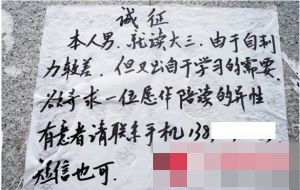 诚征
本人男.就读大三.由于自制
力较差，但又出自于学习的需要.
故寻求一位愿作陪读的异性
有意者请联系手机138
短信也可.